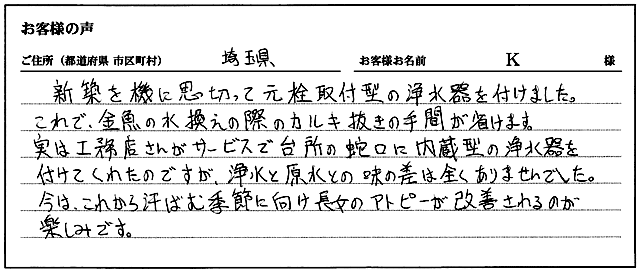 お客様の声
ご住所（都道府県 市区町村） 埼玉県 お客様お名前 K 様
新築を機に思切って元栓取付型の浄水器を付けました。
これで、金魚の水換えの際のカルキ抜きの手間が省けます。
実は工務店さんがサービスで台所の蛇口に内蔵型の浄水器を
付けてくれたのですが、浄水と原水との味の差は全くありませんでした。
今は、これから汗ばむ季節に向け長女のアトピーが改善されるのが
楽しみです。